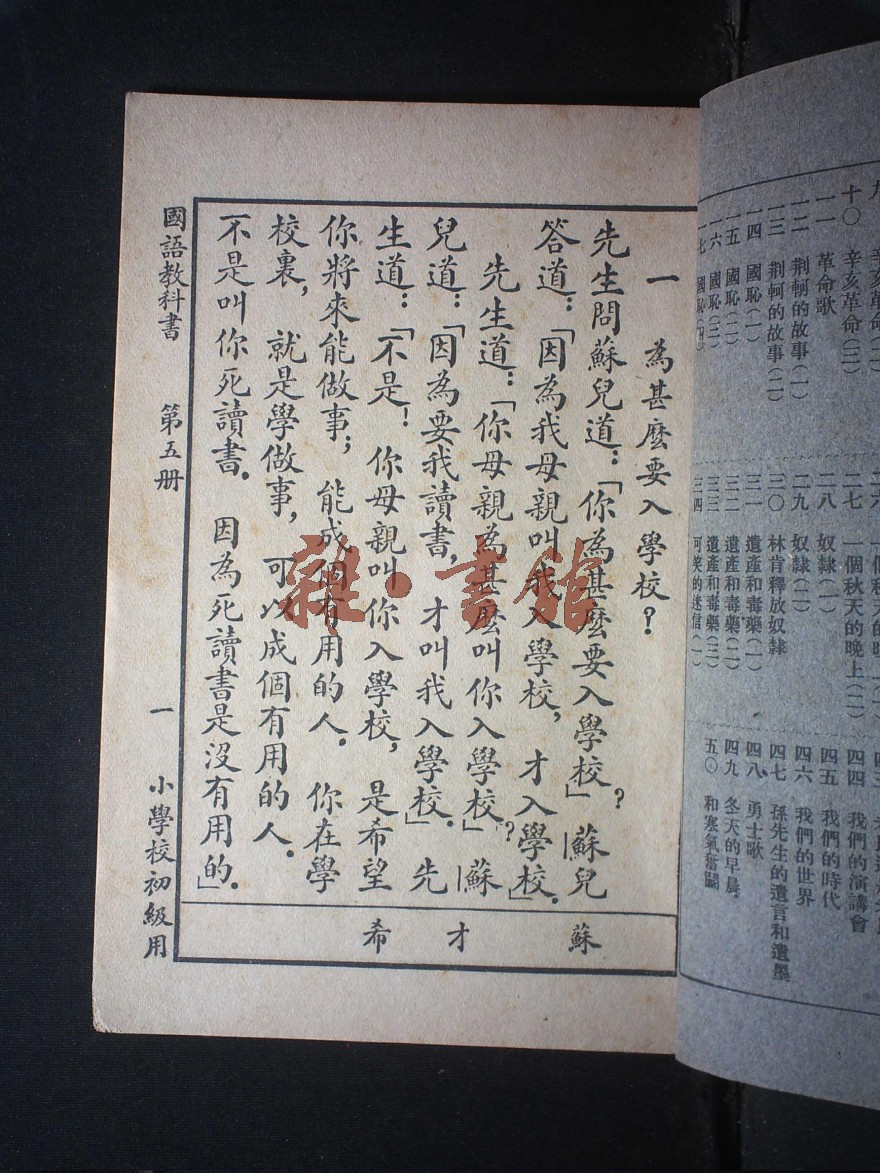 九 辛亥革命(二)
十〇 辛亥革命(三)
一一 革命歌
一二 荆軻的故事(一)
一三 荆軻的故事(二)
一四 國恥(一)
一五 國恥(二)
一六 國恥(三)
一七 國恥(四)
二七 一個秋天的晚上(二)
二八 奴隸(一)
二九 奴隸(二)
三〇 林肯釋放奴隸
三一 遺產和毒藥(一)
三二 遺產和毒藥(二)
三三 遺產和毒藥(三)
三四 可笑的迷信(一)
四四 我們的演講會
四五 我們的時代
四六 我們的世界
四七 孫先生的遺言和遺墨
四八 勇士歌
四九 冬天的早晨
五〇 和寒氣奮鬭
一 為甚麼要入學校?
先生問蘇兒道:「你為甚麼要入學校?」蘇兒
答道:「因為我母親叫我入學校,才入學校。」
先生道:「你母親為甚麼叫你入學校?」蘇
兒道:「因為要我讀書,才叫我入學校。」先
生道:「不是!你母親叫你入學校,是希望
你將來能做事;能成個有用的人。你在學
校裏,就是學做事,可以成個有用的人。
不是叫你死讀書。因為死讀書是沒有用的。」
蘇 才 希
國語教科書 第五册 一 小學校初級用
雜·書館